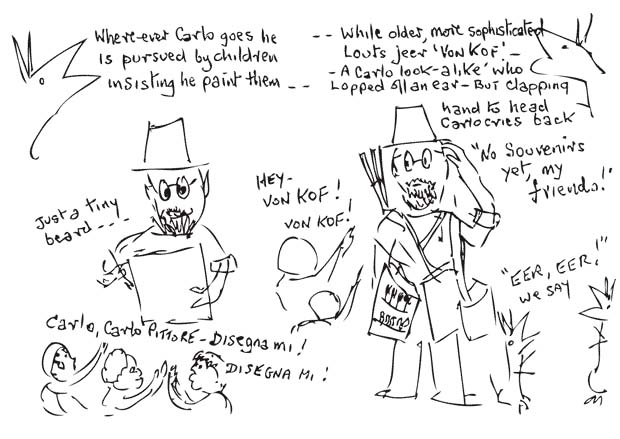 Where-ever Carlo goes he
is pursued by children
insisting he paint them --
-- While older, more sophisticated
Louts jeer 'VON KOF' -
- A Carlo look-alike who
Lopped off an ear - But clapping
hand to head
Carlo cries back
"No Souvenirs
yet, my
friends!"
Just a tiny
beard ---
HEY-
VON KOF!
VON KOF!
"EER, EER!"
we say
Carlo, Carlo PITTORE - Disegna mi!
DISEGNA MI!